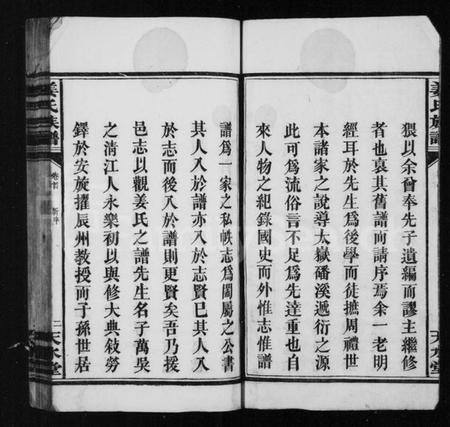 姜氏族譜
天水堂
猥以余曾奉先子遺編而謬主繼修
者也裒其舊譜而請序焉余一老明
經耳於先生爲後學而徒摭周禮世
本諸家之說導太嶽磻溪遞衍之源
此可爲流俗言不足爲先達重也自
來人物之紀錄國史而外惟志惟譜
譜爲一家之私帙志爲闔屬之公書
其人入於譜亦入於志賢已其人入
於志而後入於譜則更賢矣吾乃援
邑志以觀姜氏之譜先生名子萬吳
之淸江人永樂初以與修大典敍勞
鐸於安旋擢辰州教授而子孫世居
姜氏族譜
卷首
二
天水堂